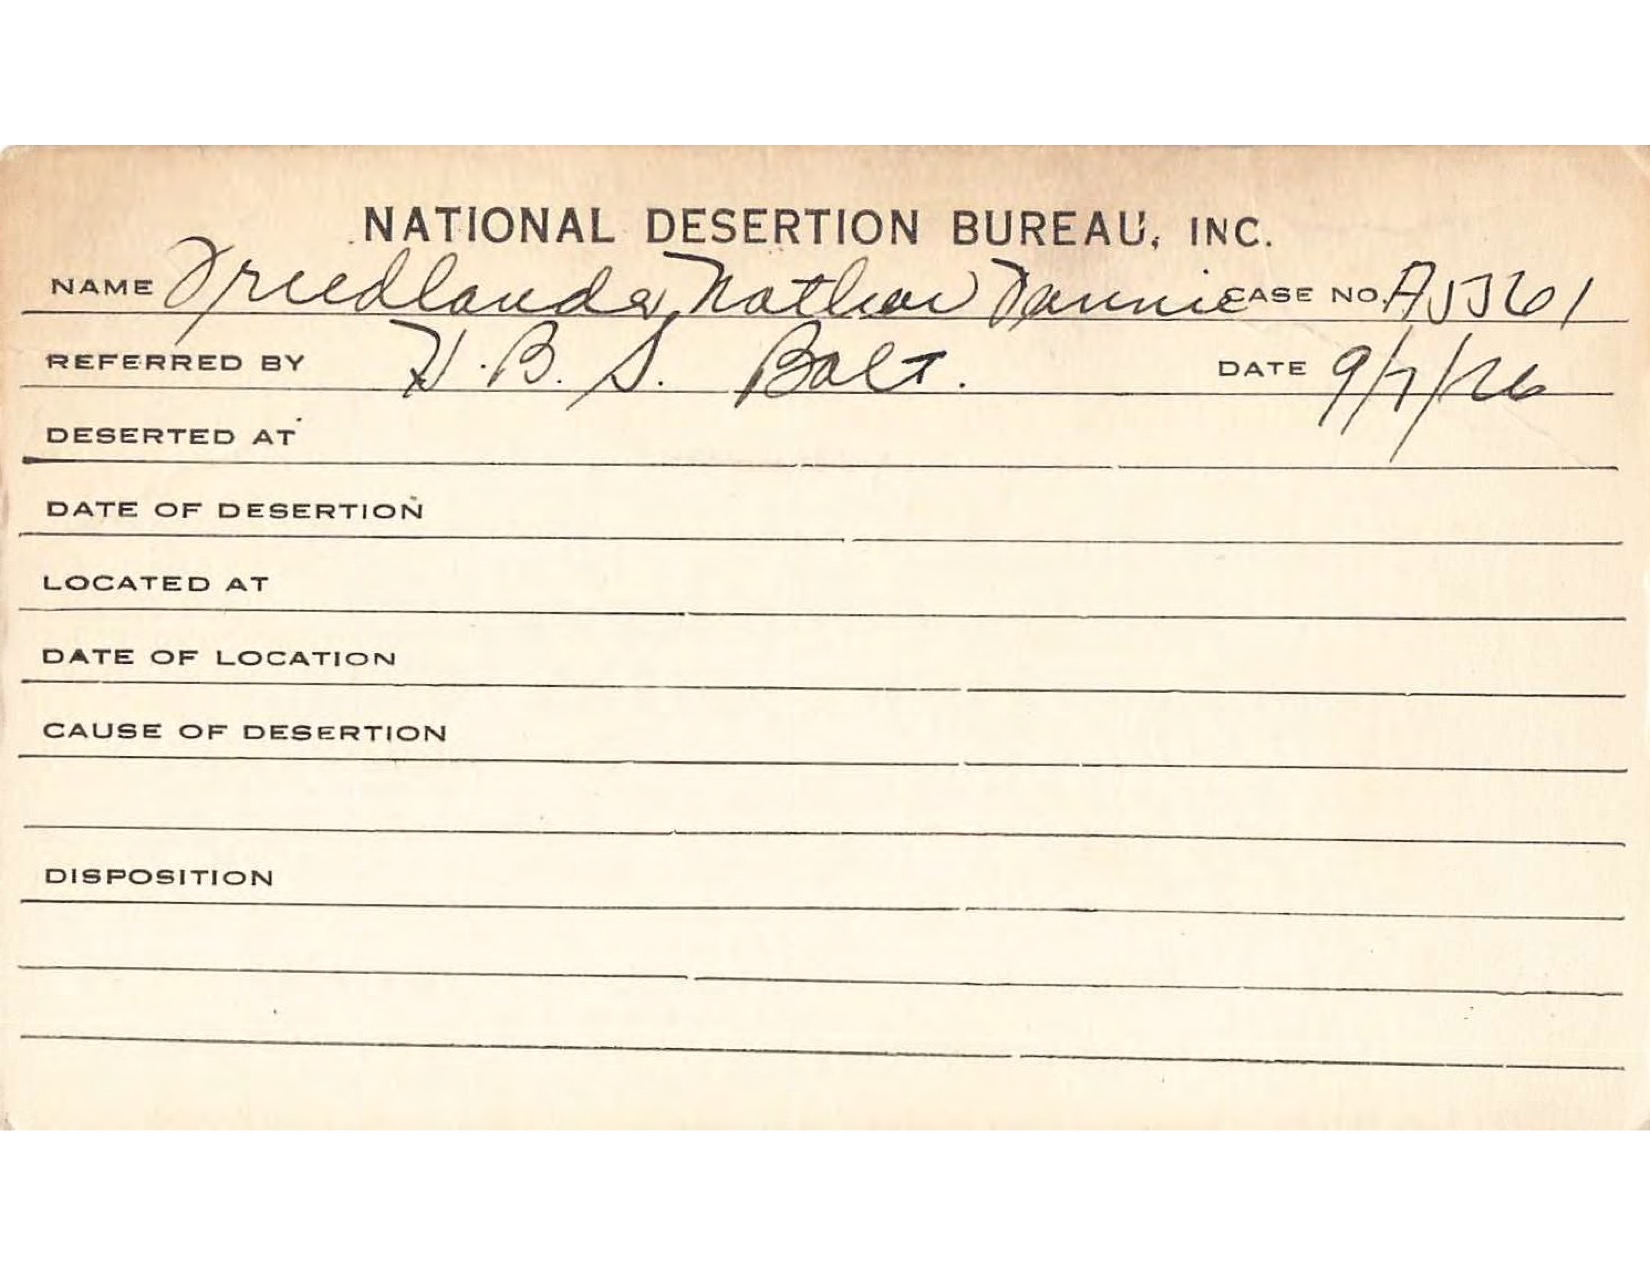 NATIONAL DESERTION BUREAU, INC.
NAME Friedlander, Nathan Fannie CASE NO. A55261
REFERRED BY H.B.S. Balt. DATE 9/7/26
DESERTED AT
DATE OF DESERTION
LOCATED AT
DATE OF LOCATION
CAUSE OF DESERTION
DISPOSITION